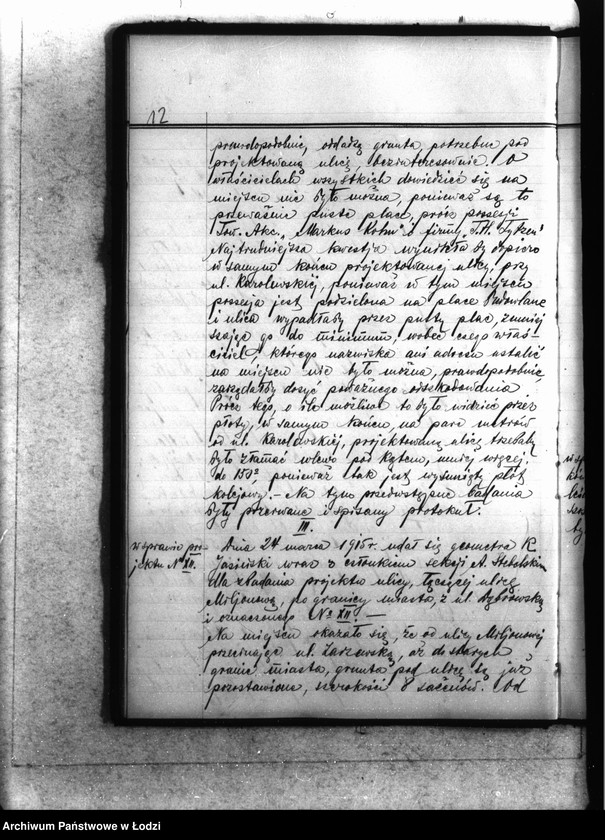 12
prawdopodobnie, oddadzą grunta, potrzebne pod
projektowaną ulicę, bezinteresownie. O
właścicielach wszystkich dowiedzieć się na
miejscu nie było można, ponieważ są to
przeważnie puste place, prócz posesji
Tow. Akc. „Markus Kohn" i firmy
Najtrudniejsza kwestja wynikłaby dopiero
w samym końcu projektowanej ulicy, przy
ul. Karolewskiej, ponieważ w tym miejscu
posesja jest podzielona na place budowlane
i ulica wypadłaby przez pusty plac, zmniej
szając go do minimum, wobec czego właś-
ciciel, którego nazwiska ani adresu ustalić
na miejscu nie było można, prawdopodobnie,
zarządałby dosyć poważnego odszkodowania
Prócz tego, o ile możliwe to było widzieć przez
płoty, w samym końcu, na parę metrów
od ul. Karolewskiej, projektowaną ulicę trzebaby
było złamać wlewo pod kątem, mniej więcej
do 150°, ponieważ tak jest wysunięty płot
kolejowy. – Na tym przedwstępne badania
były przerwane i spisany protokuł.
III.
w sprawie pro-
jektu № XII.
Dnia 24 marca 1915 r. udał się geometra R
Jasiński wraz z członkiem sekcji A. Stebelskim
dla zbadania projektu ulicy, łączącej ulicę
Miljonową, po granicy miasta, z ul. Dąbrowską
i oznaczonego № XII. —
Na miejscu okazało się, że od ulicy Miljonowej
przecinając ul. Zarzewską, aż do starych
granic miasta, grunta pod ulicę są już
pozostawione, szerokości 8 sażeni. Od
Archiwum Państwowe w Łodzi